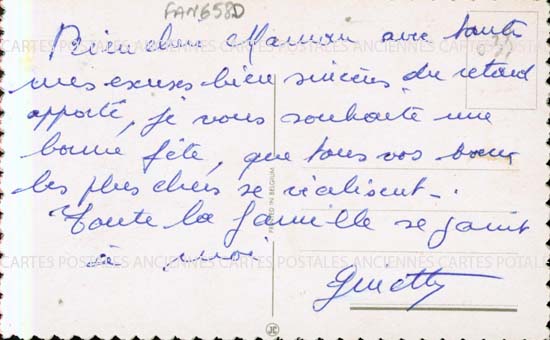 FAN658D
Bien chère Maman avec toute
mes excuses bien sincères du retard
apporté, je vous souhaite une
bonne fête, que tous vos voeux
les plus chers se réalisent -.
Toute la famille se joint
à moi
Guietty
PRINTED IN BELGIUM
JC
CARTES POSTALES ANCIENNES CARTES POSTALES ANCIENNES CARTES POTALES
CARTES POSTALES ANCIENNES CARTES POSTALES ANCIENNES CARTES POTALES